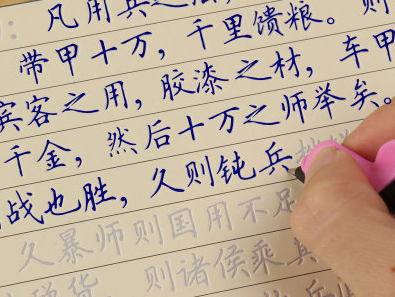 凡用兵之法，
带甲十万，千里馈粮。则
宾客之用，胶漆之材，车甲
千金，然后十万之师举矣。
战也胜，久则钝兵
久暴师则国用不足
殚货，则诸侯乘其